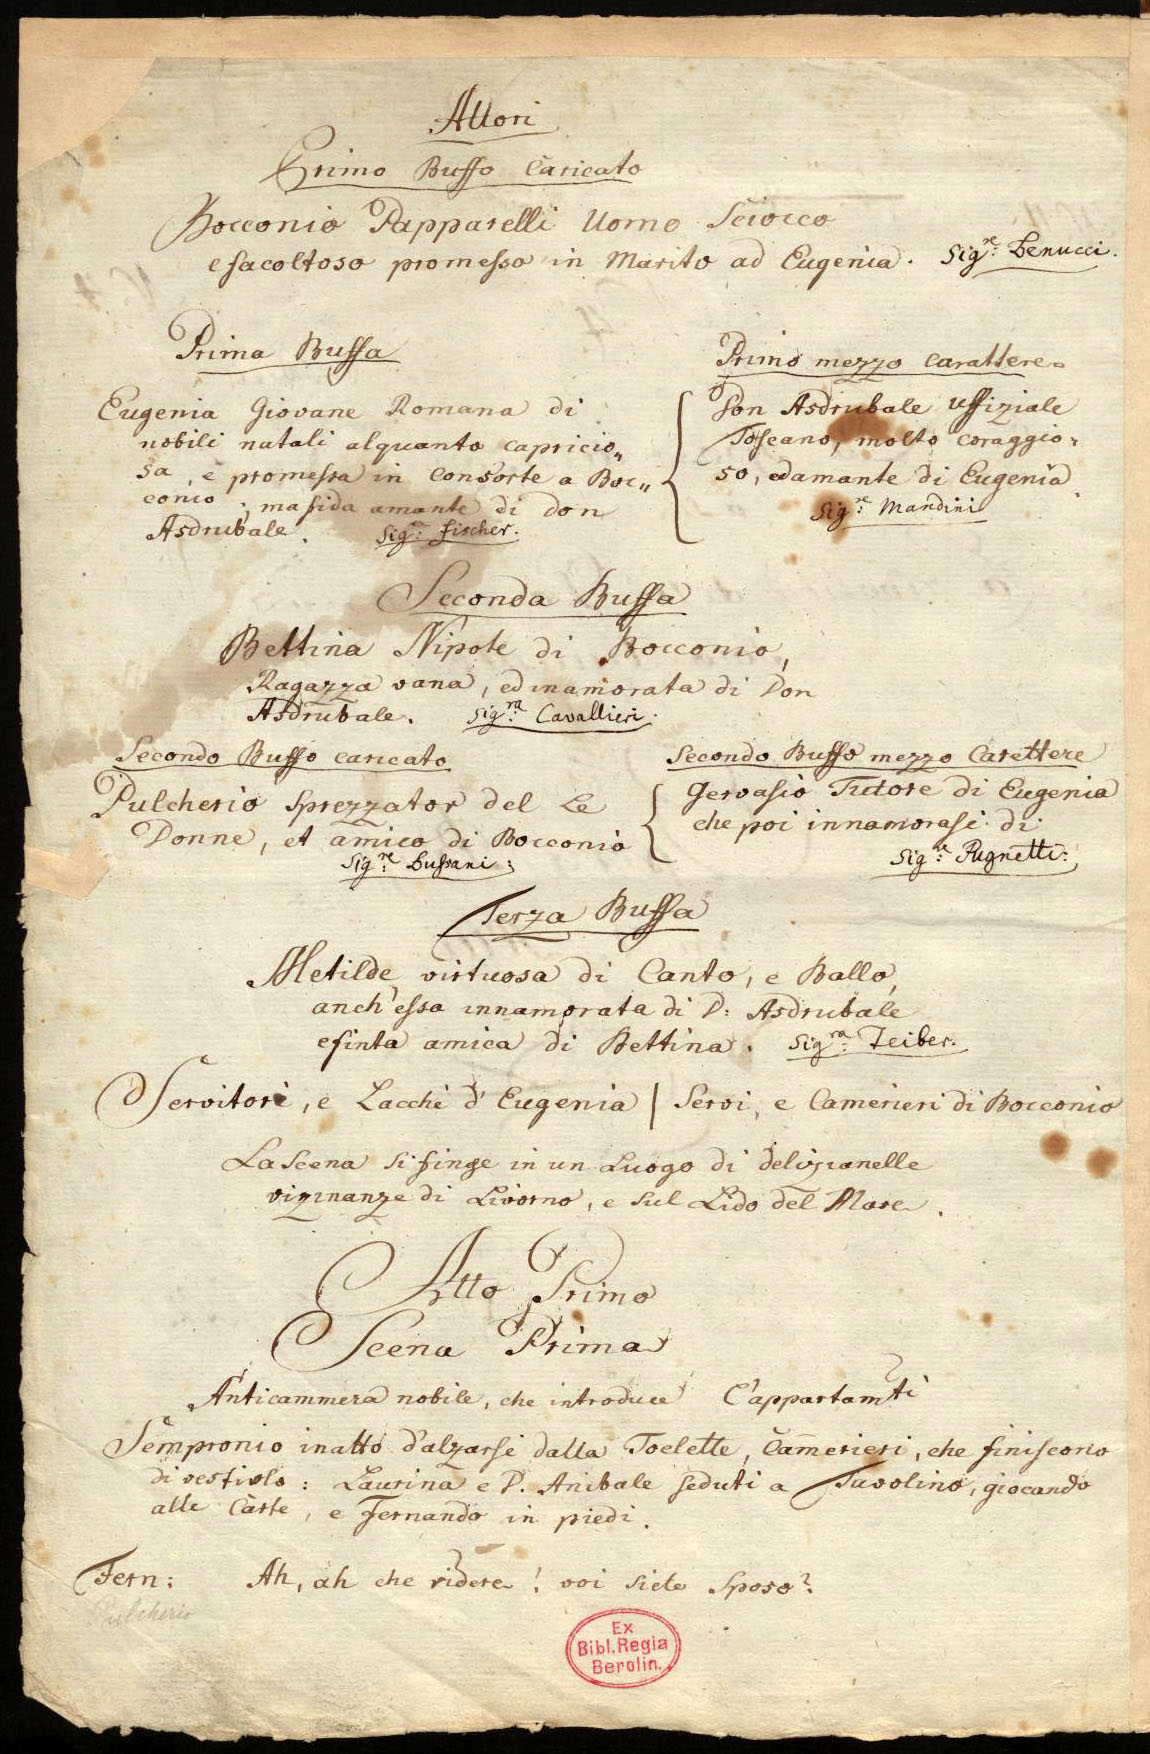 Attori
Primo Buffo Caricato
Bocconio Papparelli Uomo Sciocco
e facoltoso promesso in Marito ad Eugenia. Sig.re Benucci.
Prima Buffa
Eugenia Giovane Romana di
nobili natali alquanto capricio„
sa, e promessa in Consorte a Boc„
conio; ma fida amante di Don
Asdrubale. Sig.ra fischer.
Primo mezzo carattere
Don Asdrubale uffiziale
Toscano, molto coraggio„
so, ed amante di Eugenia
Sig.re Mandini
Seconda Buffa
Bettina Nipote di Bocconio,
Ragazza vana, ed inamorata di Don
Asdrubale. Sig.ra Cavallieri.
Secondo Buffo caricato
Pulcherio Sprezzator del Le
Donne, et amico di Bocconio
Sig.re Bussani;
Secondo Buffo mezzo Carettere
Gervasio Tutore di Eugenia
che poi innamorasi di
Sig.re Pugnetti:
Terza Buffa
Metilde virtuosa di Canto, e Ballo,
anch'essa innamorata di D: Asdrubale
e finta amica di Bettina. Sig.ra Teiber.
Servitori, e Lacchè d'Eugenia | Servi, e Camerieri di Bocconio
La Scena si finge in un Luogo di delizianelle
vizinanze di Livorno, e sul Lido del Mare.
Atto Primo
Scena Prima
Anticammera nobile, che introduce L'appartamti
Sempronio in atto d'alzarsi dalla Toelette, Camerieri, che finiscono
di vestirlo: Laurina e D. Anibale seduti a Tavolino, giocando
alle Carte, e Fernando in piedi.
Fern: Ah, ah che ridere! voi siete Sposo?
Pulcherio
Ex
Bibl. Regia
Berolin.